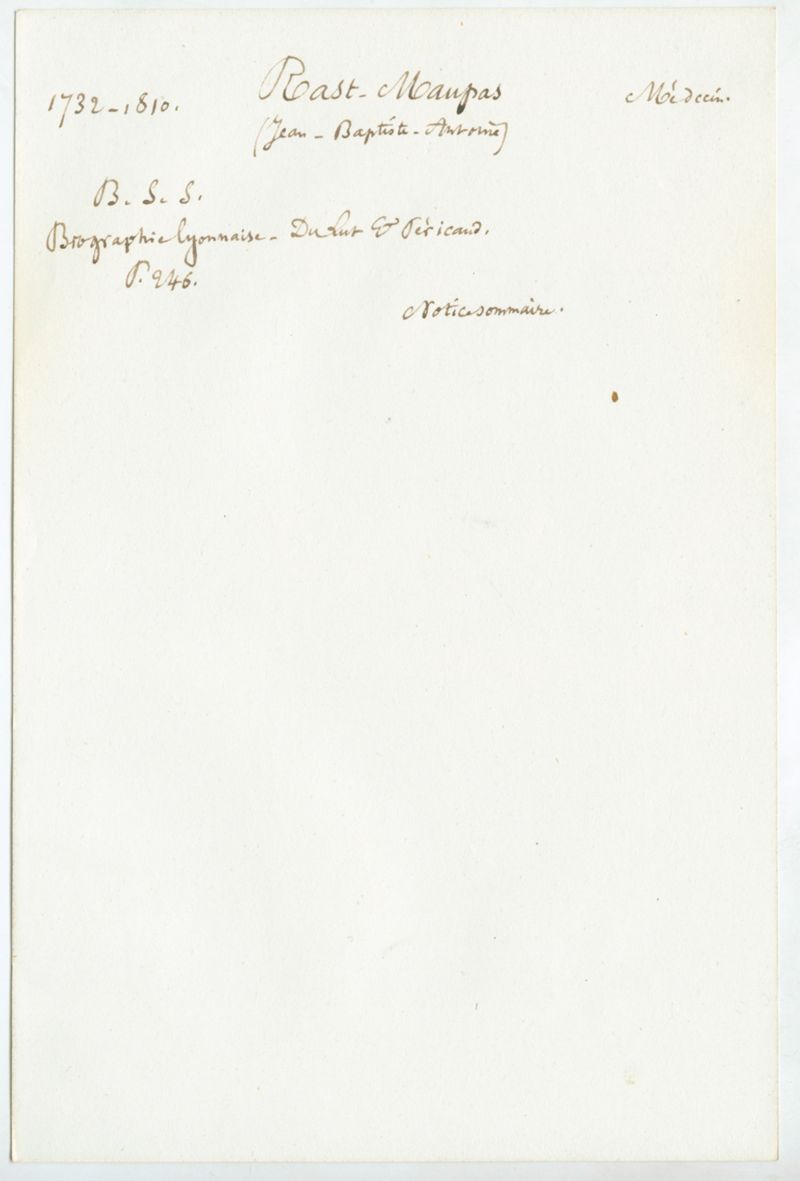 1732-1810. Rast-Maupas Médecin.
(Jean-Baptiste-Antoine)
B. S. S.
Biographie lyonnaise - Du Lut & Péricaud.
P. 246.
Notice sommaire.